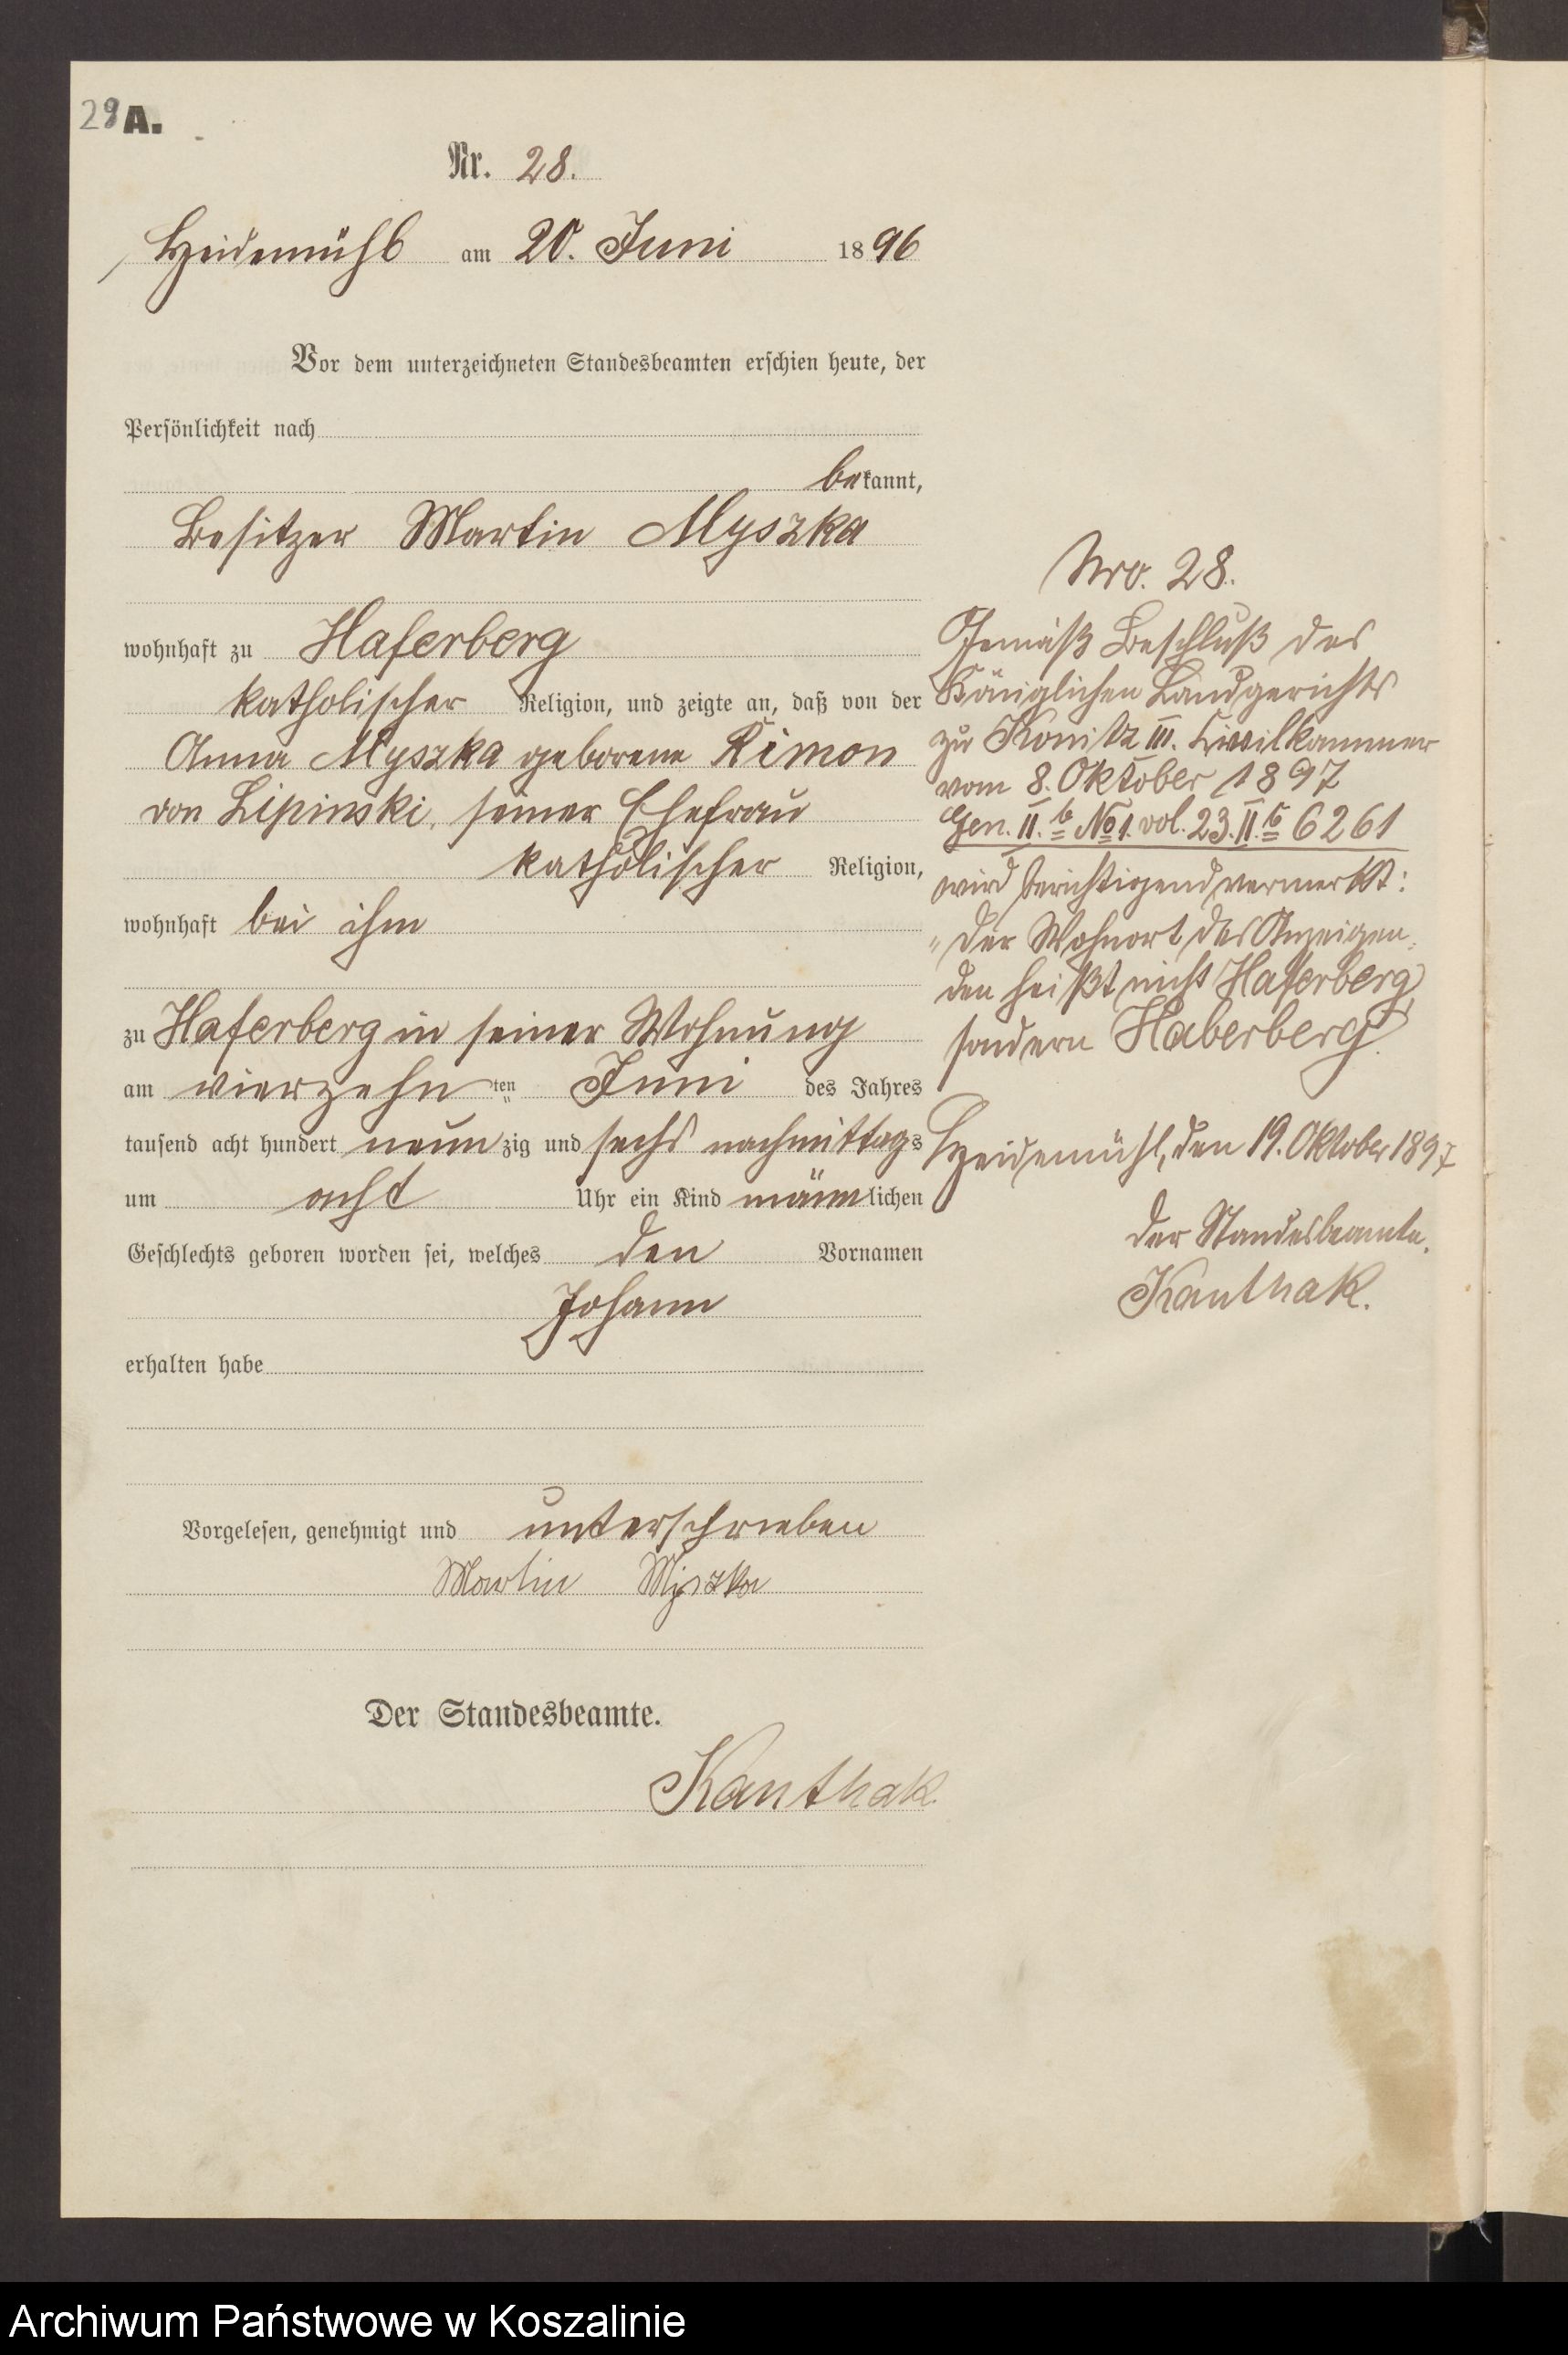 29 A.
Nr. 28.
Heidemühl am 20. Juni 1896
Vor dem unterzeichneten Standesbeamten erschien heute, der
Persönlichkeit nach
bekannt,
Besitzer Martin Myszka
wohnhaft zu Haferberg
katholischer Religion, und zeigte an, daß von der
Anna Myszka geborene Kimon
von Lipinski, seiner Ehefrau
katholischer Religion,
wohnhaft bei ihm
zu Haferberg in seiner Wohnung
am vierzehnten Juni des Jahres
tausend acht hundert neunzig und sechs nachmittags
um acht Uhr ein Kind männlichen
Geschlechts geboren worden sei, welches den Vornamen
Johann
erhalten habe
Vorgelesen, genehmigt und unterschrieben
Martin Myszka
Der Standesbeamte.
Kanthak.
Nro. 28.
Gemäß Beschluß des
Königlichen Landgerichts
zu Konitz III. Civilkammer
vom 8. Oktober 1897
Gen. II. b No 1. vol. 23. II. b 6261
wird berichtigend vermerkt:
"Der Wohnort des Anzeigen=
den heißt nicht Haferberg,
sondern Haberberg".
Heidemühl, den 19. Oktober 1897
Der Standesbeamte.
Kanthak.
Archiwum Państwowe w Koszalinie